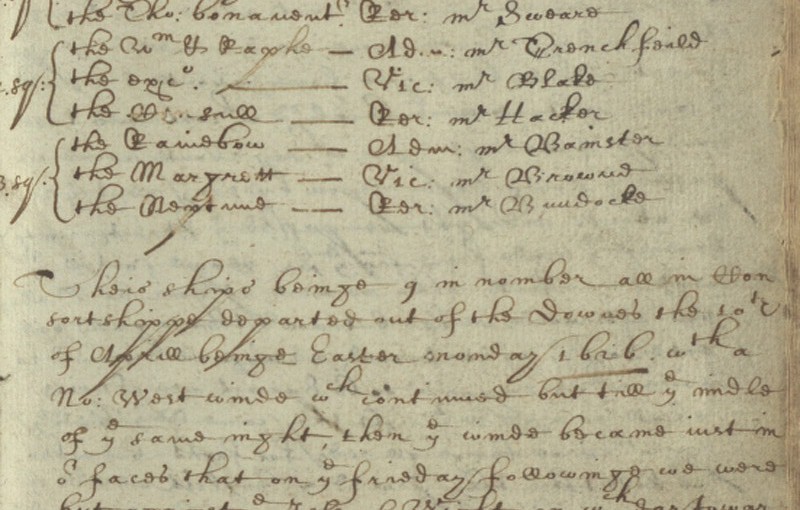 the Tho: bonavent: Rer: mr Sweare
the Wm & Raphe — Adm: mr Trenchfeild
2. sq: the expe: — Vic: mr Blake
the — Rer: mr Hacker
the Rainebow — Adm: mr Bamster
3. sq: the Margrett — Vic: mr Browne
the Neptune — Rer: mr
Theis ships beinge 9 in nomber all in Con
sortshippe departed out of the Downes the 10th
of Aprill beinge Easter monday 1626. wth a
No: West winde wch continued but till ye midle
of ye same night, then ye winde became iust in
or faces, that on ye frieday followinge we were